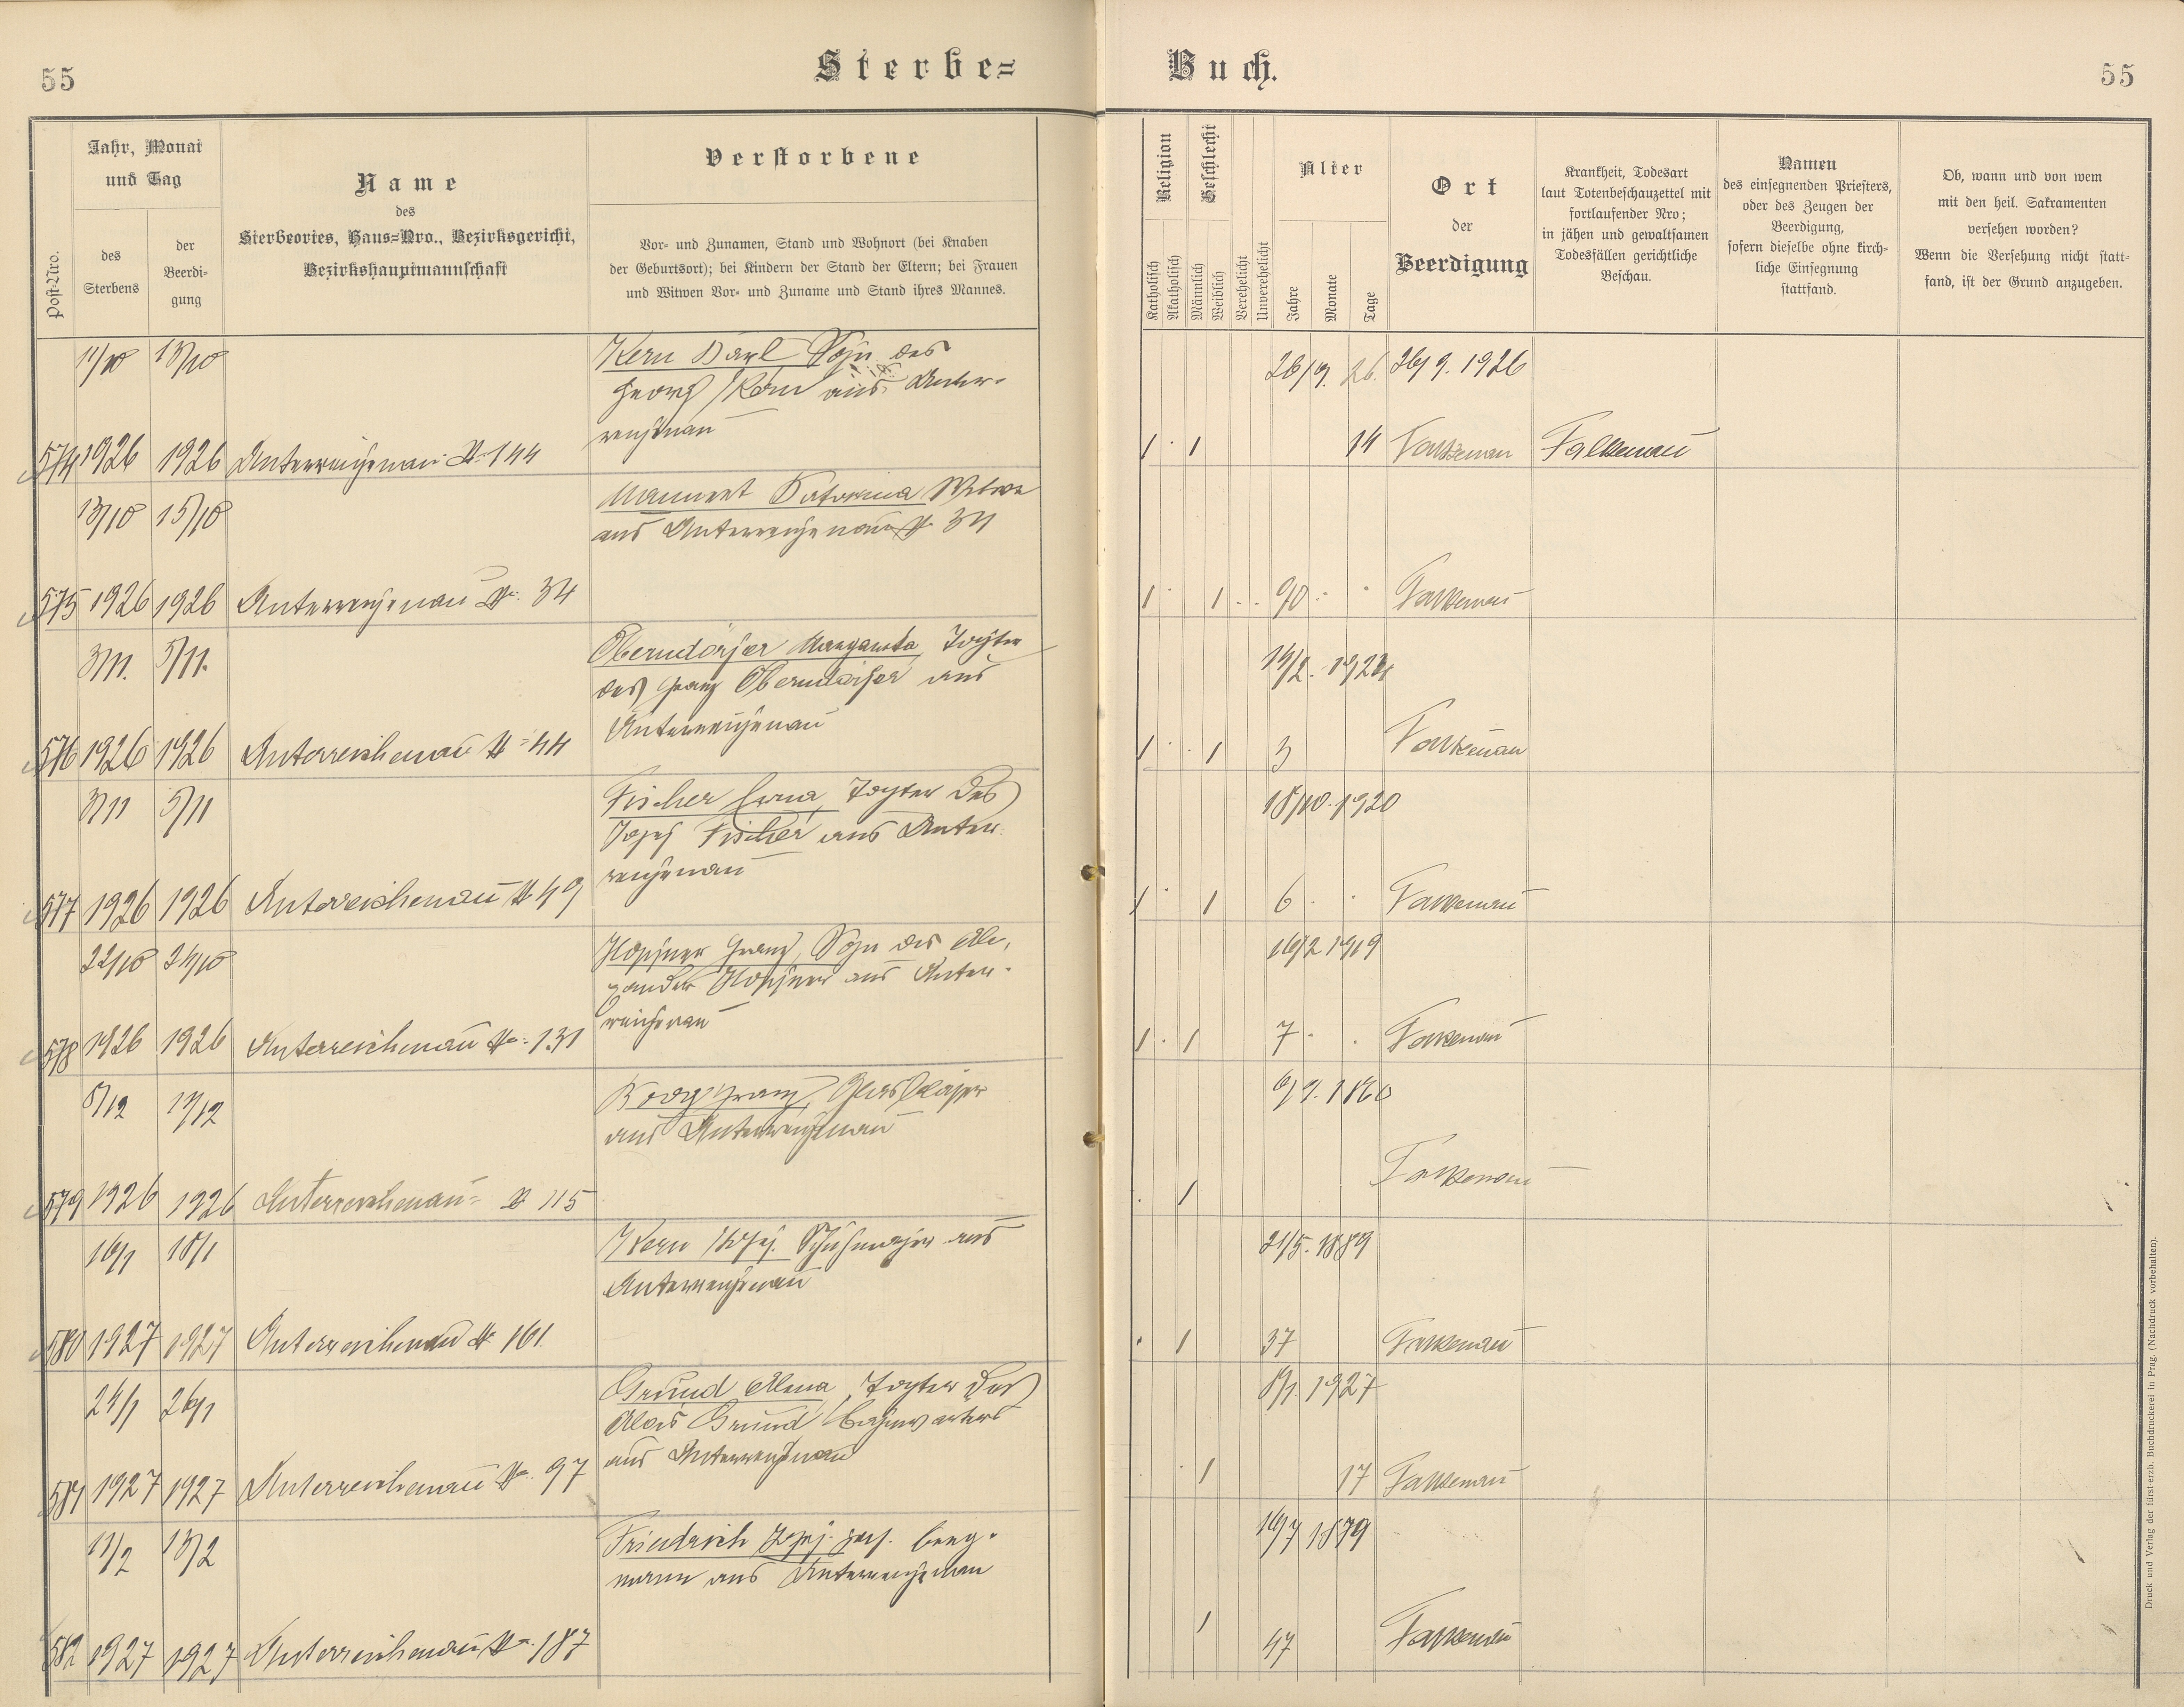 55
Sterbe=
Buch.
55
Post-Nro.
Jahr, Monat
und Tag
des
Sterbens
der
Beerdi-
gung
Name
des
Sterbeortes, Haus=Nro., Bezirksgericht,
Bezirkshauptmannschaft
Verstorbene
Vor- und Zunamen, Stand und Wohnort (bei Knaben
der Geburtsort); bei Kindern der Stand der Eltern; bei Frauen
und Witwen Vor- und Zuname und Stand ihres Mannes.
Religion
Katholisch
Akatholisch
Geschlecht
Männlich
Weiblich
Verehelicht
Unverehelicht
Alter
Jahre
Monate
Tage
Ort
der
Beerdigung
Krankheit, Todesart
laut Totenbeschauzettel mit
fortlaufender Nro;
in jähen und gewaltsamen
Todesfällen gerichtliche
Beschau.
Namen
des einsegnenden Priesters,
oder des Zeugen der
Beerdigung,
sofern dieselbe ohne kirch-
liche Einsegnung
stattfand.
Ob, wann und von wem
mit den heil. Sakramenten
versehen worden?
Wenn die Versehung nicht statt-
fand, ist der Grund anzugeben.
11/10 13/10
Kern Karl Sohn des
Georg Kern aus Unter-
reichenau
26/9. 26. 26/9. 1926
574 1926 1926 Unterreichenau № 144
1 1 14 Falkenau Falkenau
13/10 15/10
Mannert Katarina Witwe
aus Unterreichenau № 34
575 1926 1926 Unterreichenau № 34
1 1 90 Falkenau
3/11. 5/11.
Oberndörfer Margareta, Tochter
des Franz Oberndörfer aus
Unterreichenau
576 1926 1926 Unterreichenau № 44
1 1 3 Falkenau
3/11 5/11
Fischer Erna, Tochter des
Josef Fischer aus Unter-
reichenau
18/10. 1920
577 1926 1926 Unterreichenau № 49
1 1 6 Falkenau
22/10 24/10
Franz, Sohn des Ale-
xander aus Unter-
reichenau
16/2 1919
578 1926 1926 Unterreichenau № 131
1 1 7 Falkenau
Franz, Glasbläser
aus Unterreichenau
579 1926 1926 Unterreichenau № 115
1 Falkenau
16/1 18/1
Kern Josef. Schuhmacher aus
Unterreichenau
21/5. 1889
580 1927 1927 Unterreichenau № 161
1 37 Falkenau
24/1 26/1
Grund Tochter des
Alois Grund, Bahnwärters
aus Unterreichenau
1927
581 1927 1927 Unterreichenau № 97
1 17 Falkenau
11/2 13/2
Friedrich Josef. Berg-
mann aus Unterreichenau
1879
582 1927 1927 Unterreichenau № 187
1 47 Falkenau
Druck und Verlag der fürst-erzb. Buchdruckerei in Prag. (Nachdruck vorbehalten).